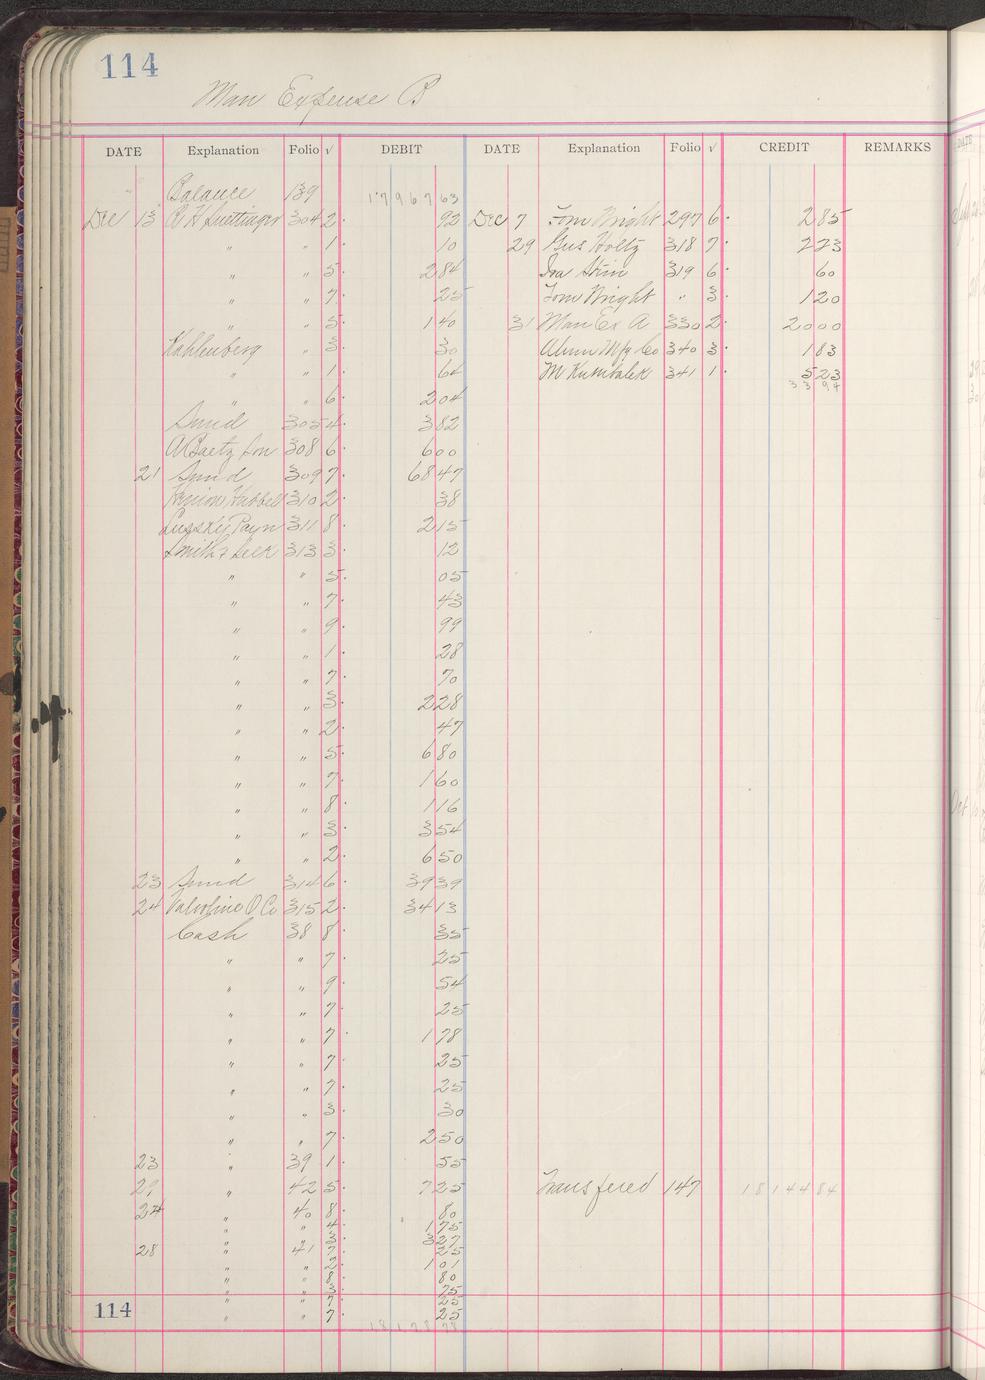 114
Man Expense B
DATE Explanation Folio √ DEBIT DATE Explanation Folio √ CREDIT REMARKS
Balance 139 17967 63
Dec 13 304 2 92 Dec 7 Tom Wright 297 6 2 85
" " 1 10 29 Gus Holtz 318 7 2 23
" " 5 2 84 Ira 319 6 60
" " 7 25 Tom Wright " 3 1 20
" " 5 1 40 31 Man Ex A 330 2 20 00
Kahlenberg " 3 30 Alum Mfg Co 340 3 1 83
" " 1 64 M Kumbalek 341 1 5 23
33 94
" " 6 2 04
Sund 305 4 3 82
A Baetz Son 308 6 6 00
21 Sund 309 7 68 47
Hubbell 310 2 38
311 8 2 15
Smith & 313 3 12
" " 5 05
" " 7 43
" " 9 99
" " 1 28
" " 7 70
" " 3 2 28
" " 2 47
" " 5 6 80
" " 7 1 60
" " 8 1 16
" " 3 3 54
" " 2 6 50
23 Sund 314 6 39 39
24 Valvoline O Co 315 2 34 13
Cash 38 8 35
" " 7 25
" " 9 54
" " 7 25
" " 7 1 78
" " 7 25
" " 7 25
" " 3 30
" " 7 2 50
23 " 39 1 55
29 " 42 5 7 25 Transfered 147 18144 84
24 " 40 8 80
" " 4 1 75
" " 3 3 27
28 " 41 7 25
" " 2 1 01
" " 8 80
" " 3 75
" " 7 25
114 " " 7 25
18178 78